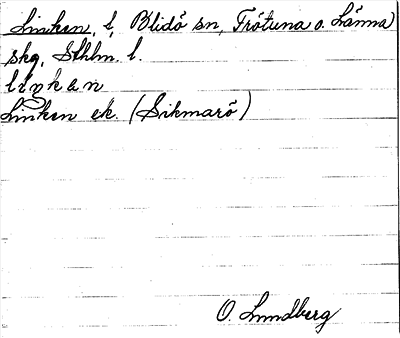 Linken, ö, Blidö sn, Frötuna o. Länna
skg, Sthlm. l.
liŋkan
Linken ek. (Sikmarö)
O. Lundberg